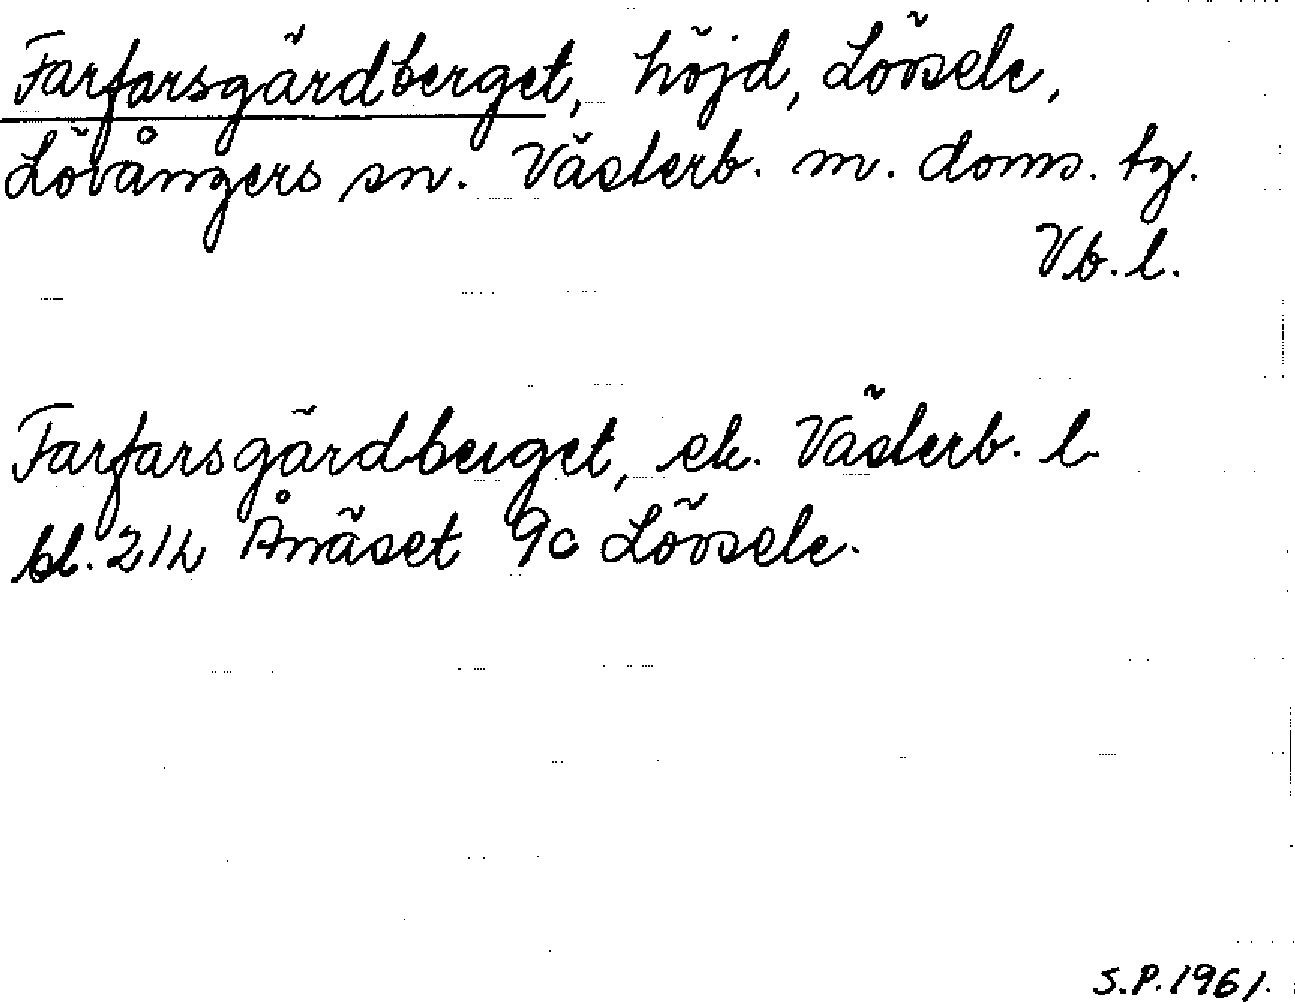 Farfarsgärdberget, höjd, Lövsele,
Lövångers sn. Västerb. m. doms. tg.
Vb. l.
Farfarsgärdberget, ek. Västerb. l
bl. 21L Ånäset 9c Lövsele.
S.P. 1961.